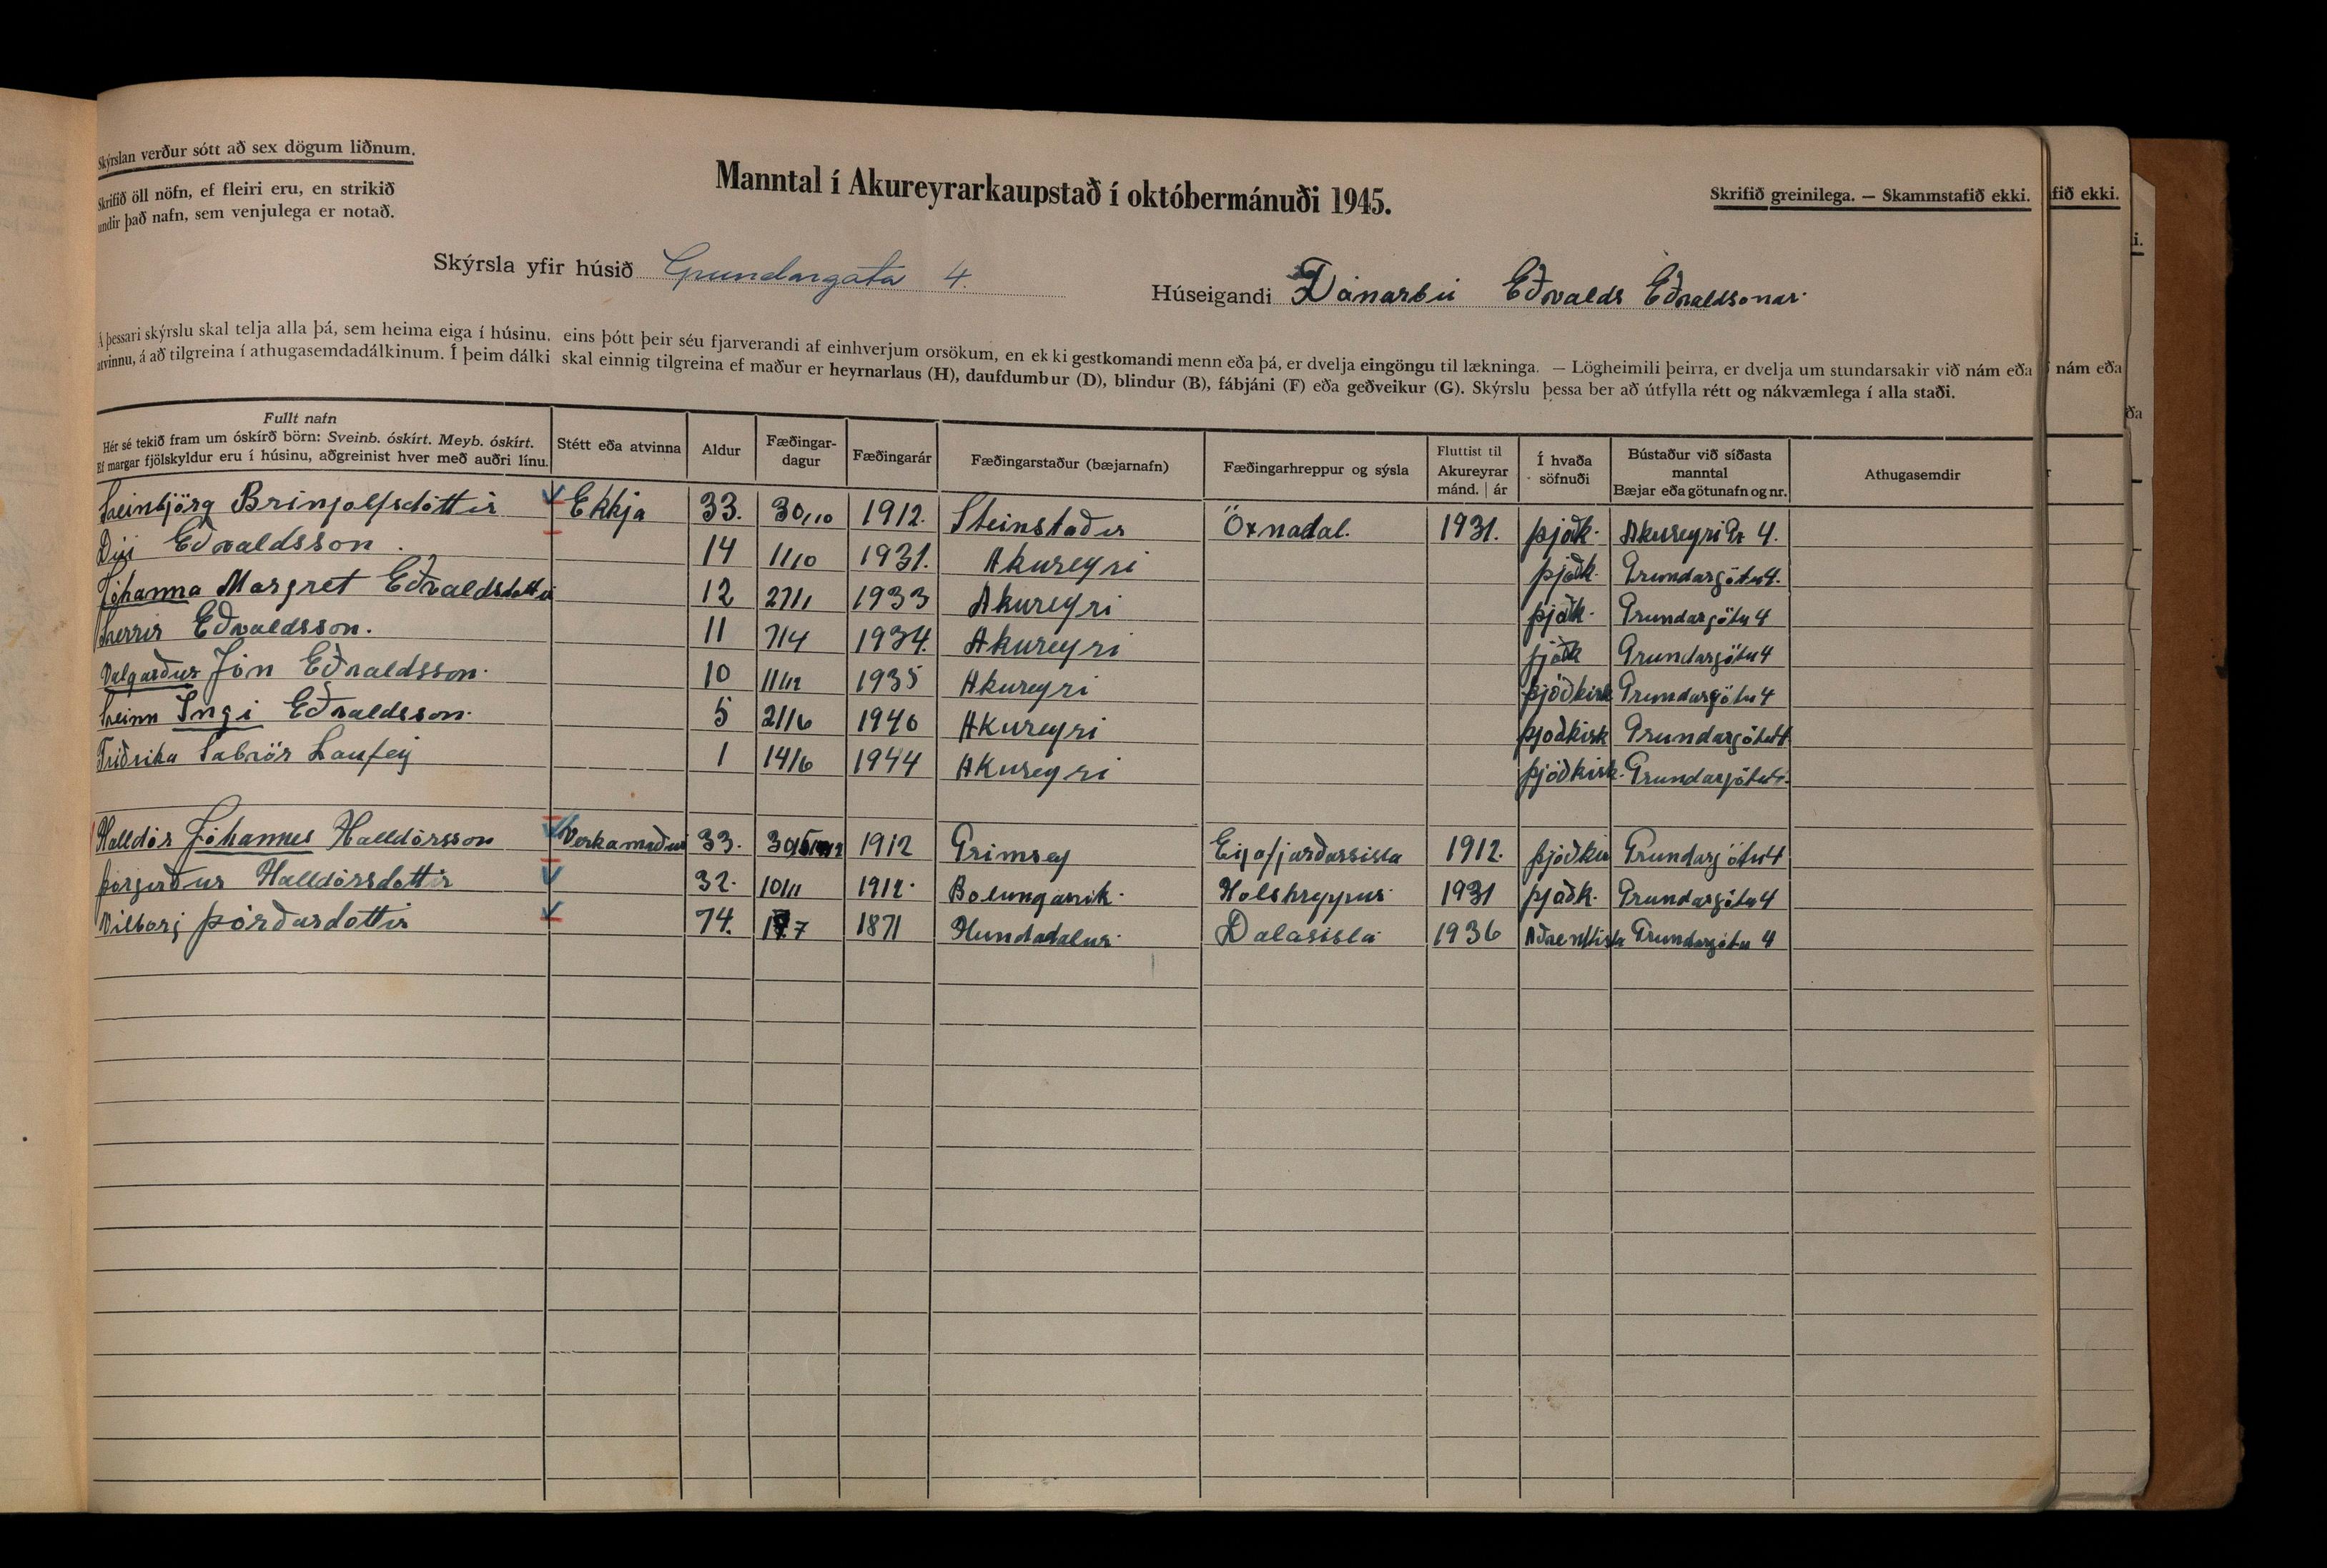 Skýrslan verður sótt að sex dögum liðnum.
Skrifið öll nöfn, ef fleiri eru, en strikið
undir það nafn, sem venjulega er notað.
Manntal í Akureyrarkaupstað í októbermánuði 1945.
Skrifið greinilega. — Skammstafið ekki.
ifið ekki.
Skýrsla yfir húsið Grundargata 4.
Húseigandi Dánarbú Eðvalds Eðvaldsonar
Á þessari skýrslu skal telja alla þá, sem heima eiga í húsinu, eins þótt þeir séu fjarverandi af einhverjum orsökum, en ekki gestkomandi menn eða þá, er dvelja eingöngu til lækninga. — Lögheimili þeirra, er dvelja um stundarsakir við nám eða
nám eða
atvinnu, á að tilgreina í athugasemdadálkinum. Í þeim dálki skal einnig tilgreina ef maður er heyrnarlaus (H), daufdumbur (D), blindur (B), fábjáni (F) eða geðveikur (G). Skýrslu þessa ber að útfylla rétt og nákvæmlega í alla staði.
Fullt nafn
Hér sé tekið fram um óskírð börn: Sveinb. óskírt. Meyb. óskírt.
Ef margar fjölskyldur eru í húsinu, aðgreinist hver með auðri línu.
Stétt eða atvinna
Aldur
Fæðingar-
dagur
Fæðingarár
Fæðingarstaður (bæjarnafn)
Fæðingarhreppur og sýsla
Fluttist til
Akureyrar
mánd. | ár
Í hvaða
söfnuði
Bústaður við síðasta
manntal
Bæjar eða götunafn og nr.
Athugasemdir
Sveinbjörg Brinjolfsdóttir Ekkja 33. 30/10 1912. Steinstaðir Öxnadal. 1931. þjóðk. Akureyri Gr 4.
Eðvaldsson 14 1/10 1931. Akureyri þjóðk. Grundargötu 4.
Jóhanna Margret Eðvaldsdottir 12 27/1 1933 Akureyri þjóðk. Grundargötu 4
Sverrir Eðvaldsson. 11 7/4 1934. Akureyri þjóðk Grundargötu 4
Valgarður Jón Eðvaldsson. 10 11/12 1935 Akureyri þjóðkirk Grundargötu 4
Sveinn Ingi Eðvaldsson. 5 21/6 1940 Akureyri þjoðkirk Grundargötu 4
Friðrika Laufey 1 14/6 1944 Akureyri þjóðkirk. Grundargötu 4.
Halldór Jóhannes Halldórsson Verkamaður 33. 1912 Grimsey Eyjafjarðarsisla 1912. þjóðkir Grundargötu 4
Þorgerður Halldórsdottir 32. 10/11 1912. Bolungarvik. Holshreppur 1931 þjoðk. Grundargötu 4
Vilborg Þórðardottir 74. 1871 Hundadalur. Dalasisla 1936 Aðventista Grundargötu 4